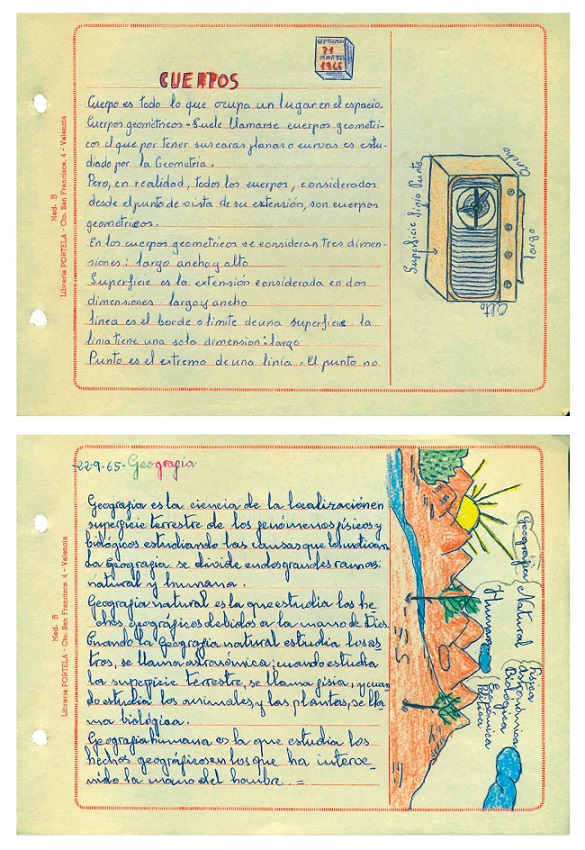 21
1966
CUERPOS
Cuerpo es todo lo que ocupa un lugar en el espacio.
Cuerpos geométricos - Suele llamarse cuerpos geometri-
cos el que por tener sus caras planas o curvas es estu-
diado por la Geometría.
Pero, en realidad, todos los cuerpos, considerados
desde el punto de vista de su extensión, son cuerpos
geometricos.
En los cuerpos geometricos se consideran tres dimen-
siones: largo ancho y alto
Superficie es la extensión considerada en dos
dimensiones largo y ancho
linea es el borde o limite de una superficie. la
linia tiene una sola dimension: largo
Punto es el extremo de una linia. El punto no
Superficie linia Punto
Ancho
largo
Alto
Mod. B
Librería PORTELA - Cto. San Francisco, 4 - Valencia
22-9-65- Geografia
Geografia es la ciencia de la localización en
superficie terrestre de los fenómenos físicos y
biológicos estudiando las causas que los
La Geografia se divide en dos grandes ramas:
natural y humana.
Geografia natural es la que estudia los he-
chos geográficos debidos a la mano de Dios.
Cuando la Geografia natural estudia los as-
tros, se llama astronómica; cuando estudia
la superficie terrestre, se llama fisia, y cuan-
do estudia los animales y las plantas, se lla-
ma biológica.
Geografia humana es la que estudia los
hechos geográficos en los que ha interve-
nido la mano del hombre. =
Geografia
Natural
Humana
Fisica
Astronomica
Biologica
Mod. B
Librería PORTELA - Cto. San Francisco, 4 - Valencia